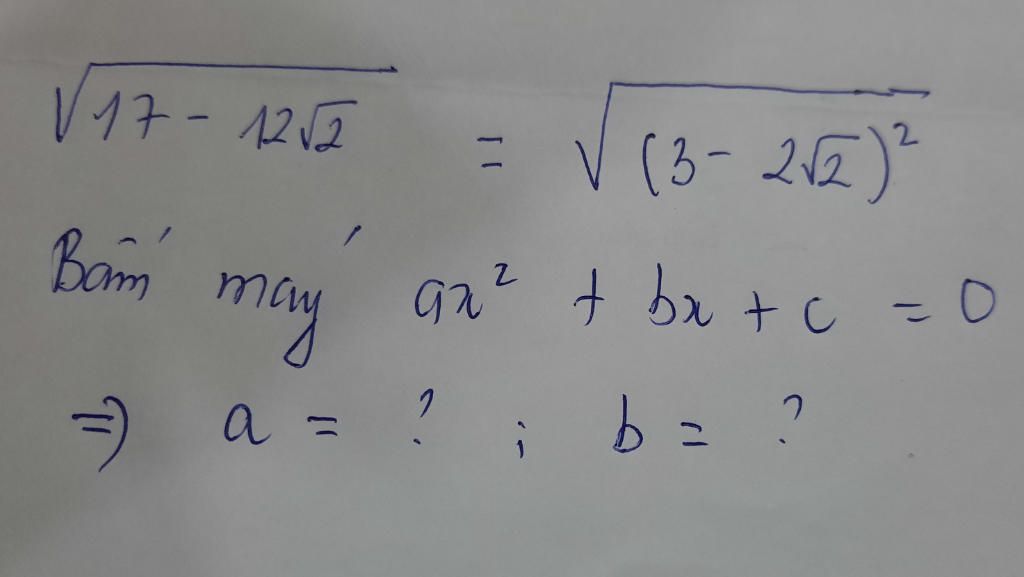 √(17 - 12√2) = √((3 - 2√2)²)
Bấm máy ax² + bx + c = 0
=> a = ? ; b = ?